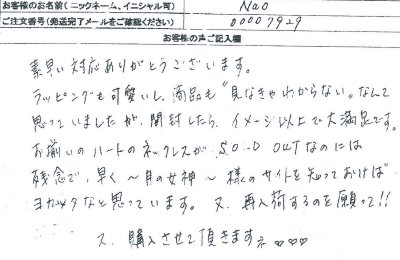 お客様のお名前(ニックネーム、イニシャル可) Nao
ご注文番号(発送完了メールをご確認ください) 00007929
お客様の声ご記入欄
素早い対応ありがとうございます。
ラッピングも可愛いし、商品も "見なきゃわからない" なんて
思っていましたが、開封したら、イメージ以上で大満足です。
お揃いのハートのネックレスが、SO-D OUTなのには
残念で、早く 〜月の女神〜 様のサイトを知っておけば
ヨカッタなと思っています。 又、再入荷するのを願って!!
又、購入させて頂きますネ ♡♡♡